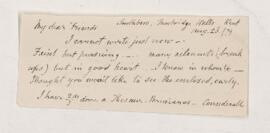 My dear Friends
Southboro, Tunbridge Wells Kent
Aug. 23. /79
I cannot write just now -
Faint but pursuing - many ailments (break
ups) but in good heart. I know in whom -
Thought you would like to see the enclosed, early.
I have done a Thesaur. Considerable